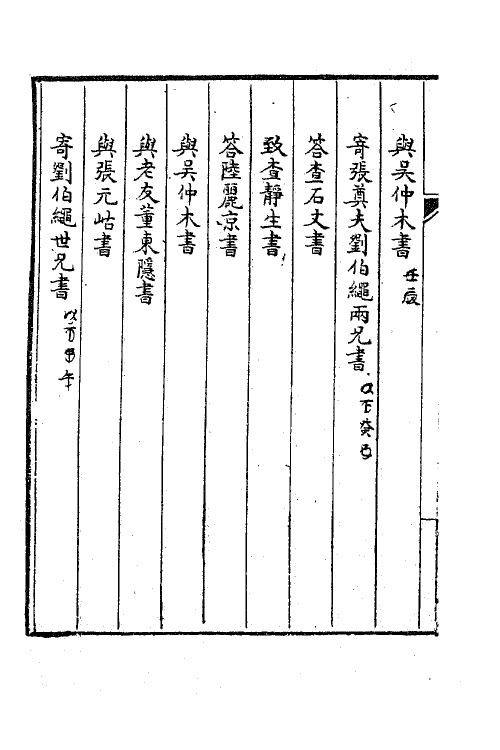 與吳仲木書 壬辰
寄張奠夫劉伯繩兩兄書 以下癸巳
答查石丈書
致查靜生書
答陸麗京書
與吳仲木書
與老友董東隱書
與張元岵書
寄劉伯繩世兄書 以下甲午